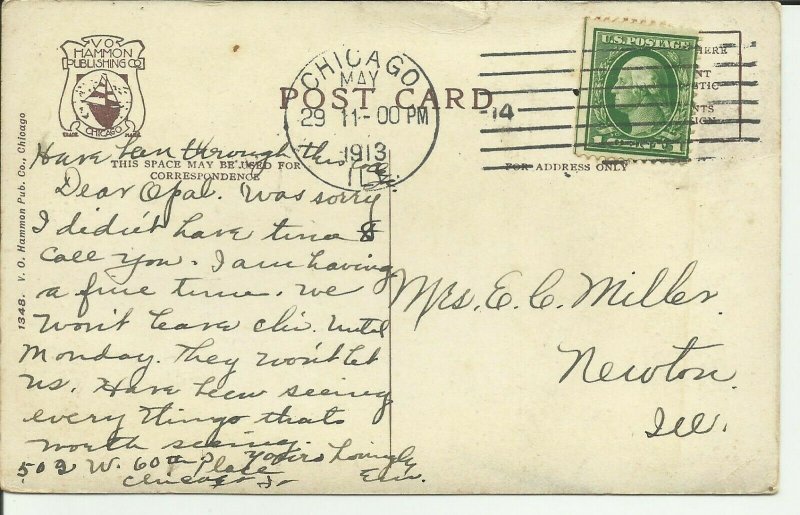 V.O.
HAMMON
PUBLISHING CO
TRADE MARK
CHICAGO
1348. V. O. Hammon Pub. Co., Chicago
CHICAGO
MAY
29 11-00 PM
1913
ILL.
14
U.S. POSTAGE
1 CENT 1
HERE
NT
STIC
NTS
IGN
POST CARD
THIS SPACE MAY BE USED FOR
CORRESPONDENCE
FOR ADDRESS ONLY
Have been through this
Dear Opal. Was sorry
I didn't have time to
call you. I am having
a fine time. We
won't leave Chi. until
Monday. They won't let
us. Have been seeing
every thing thats
worth seeing.
Yours lovingly
502 W. 60th Place
Chicago
Mrs. E. C. Miller.
Newton.
Ill.